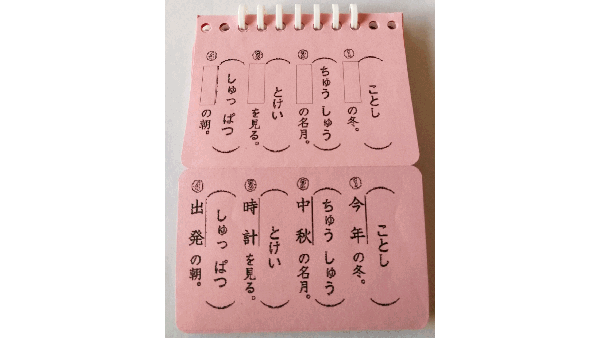 ① (ことし)
□の冬。
② (ちゅうしゅう)
□の名月。
③ (とけい)
□を見る。
④ (しゅっぱつ)
□の朝。
① (ことし)
今年の冬。
② (ちゅうしゅう)
中秋の名月。
③ (とけい)
時計を見る。
④ (しゅっぱつ)
出発の朝。